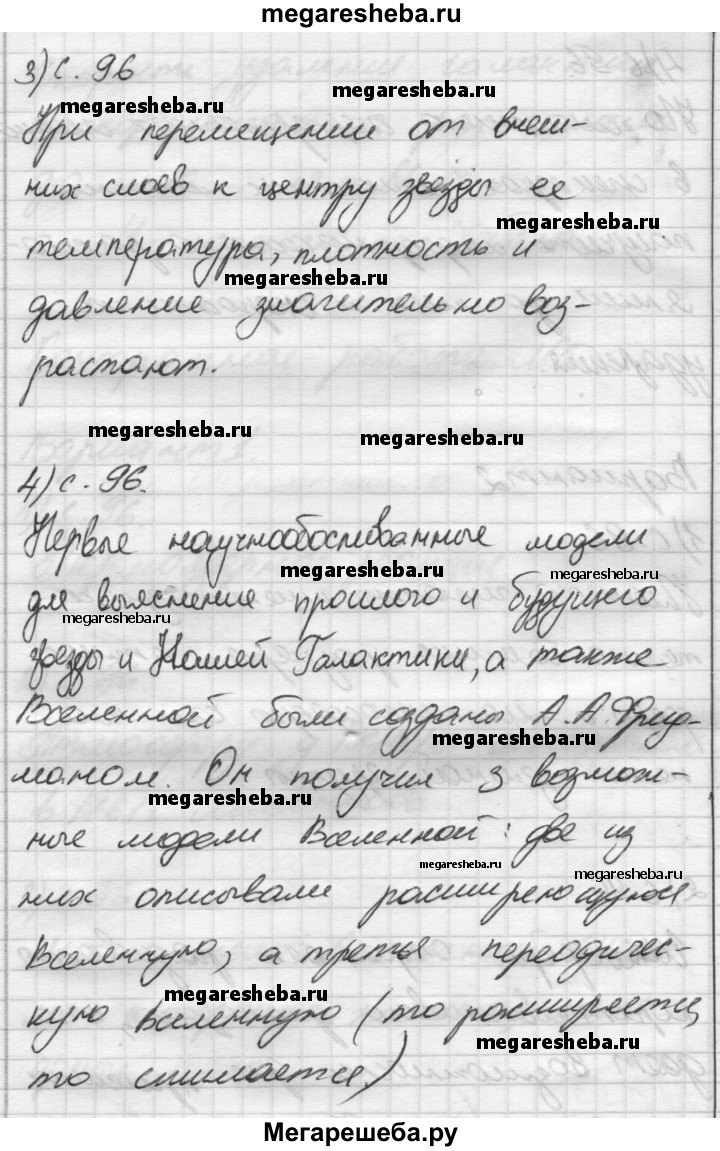 megaresheba.ru
3) с. 96
megaresheba.ru
При перемещении от внеш-
них слоев к центру звезды ее
megaresheba.ru
температура, плотность и
megaresheba.ru
давление значительно воз-
растают.
megaresheba.ru
megaresheba.ru
4) с. 96.
Первые научнообоснованные модели
megaresheba.ru
megaresheba.ru
для выяснения прошлого и будущего
megaresheba.ru
звезды и Нашей Галактики, а также
Вселенной были созданы А.А. Фрид-
megaresheba.ru
маном. Он получил 3 возмож-
megaresheba.ru
ные модели Вселенной: две из
megaresheba.ru
megaresheba.ru
них описывали расширеющуюся
Вселенную, а третья переодичес-
megaresheba.ru
кую вселенную (то расширяется,
megaresheba.ru
то сжимается)
Мегарешеба.ру